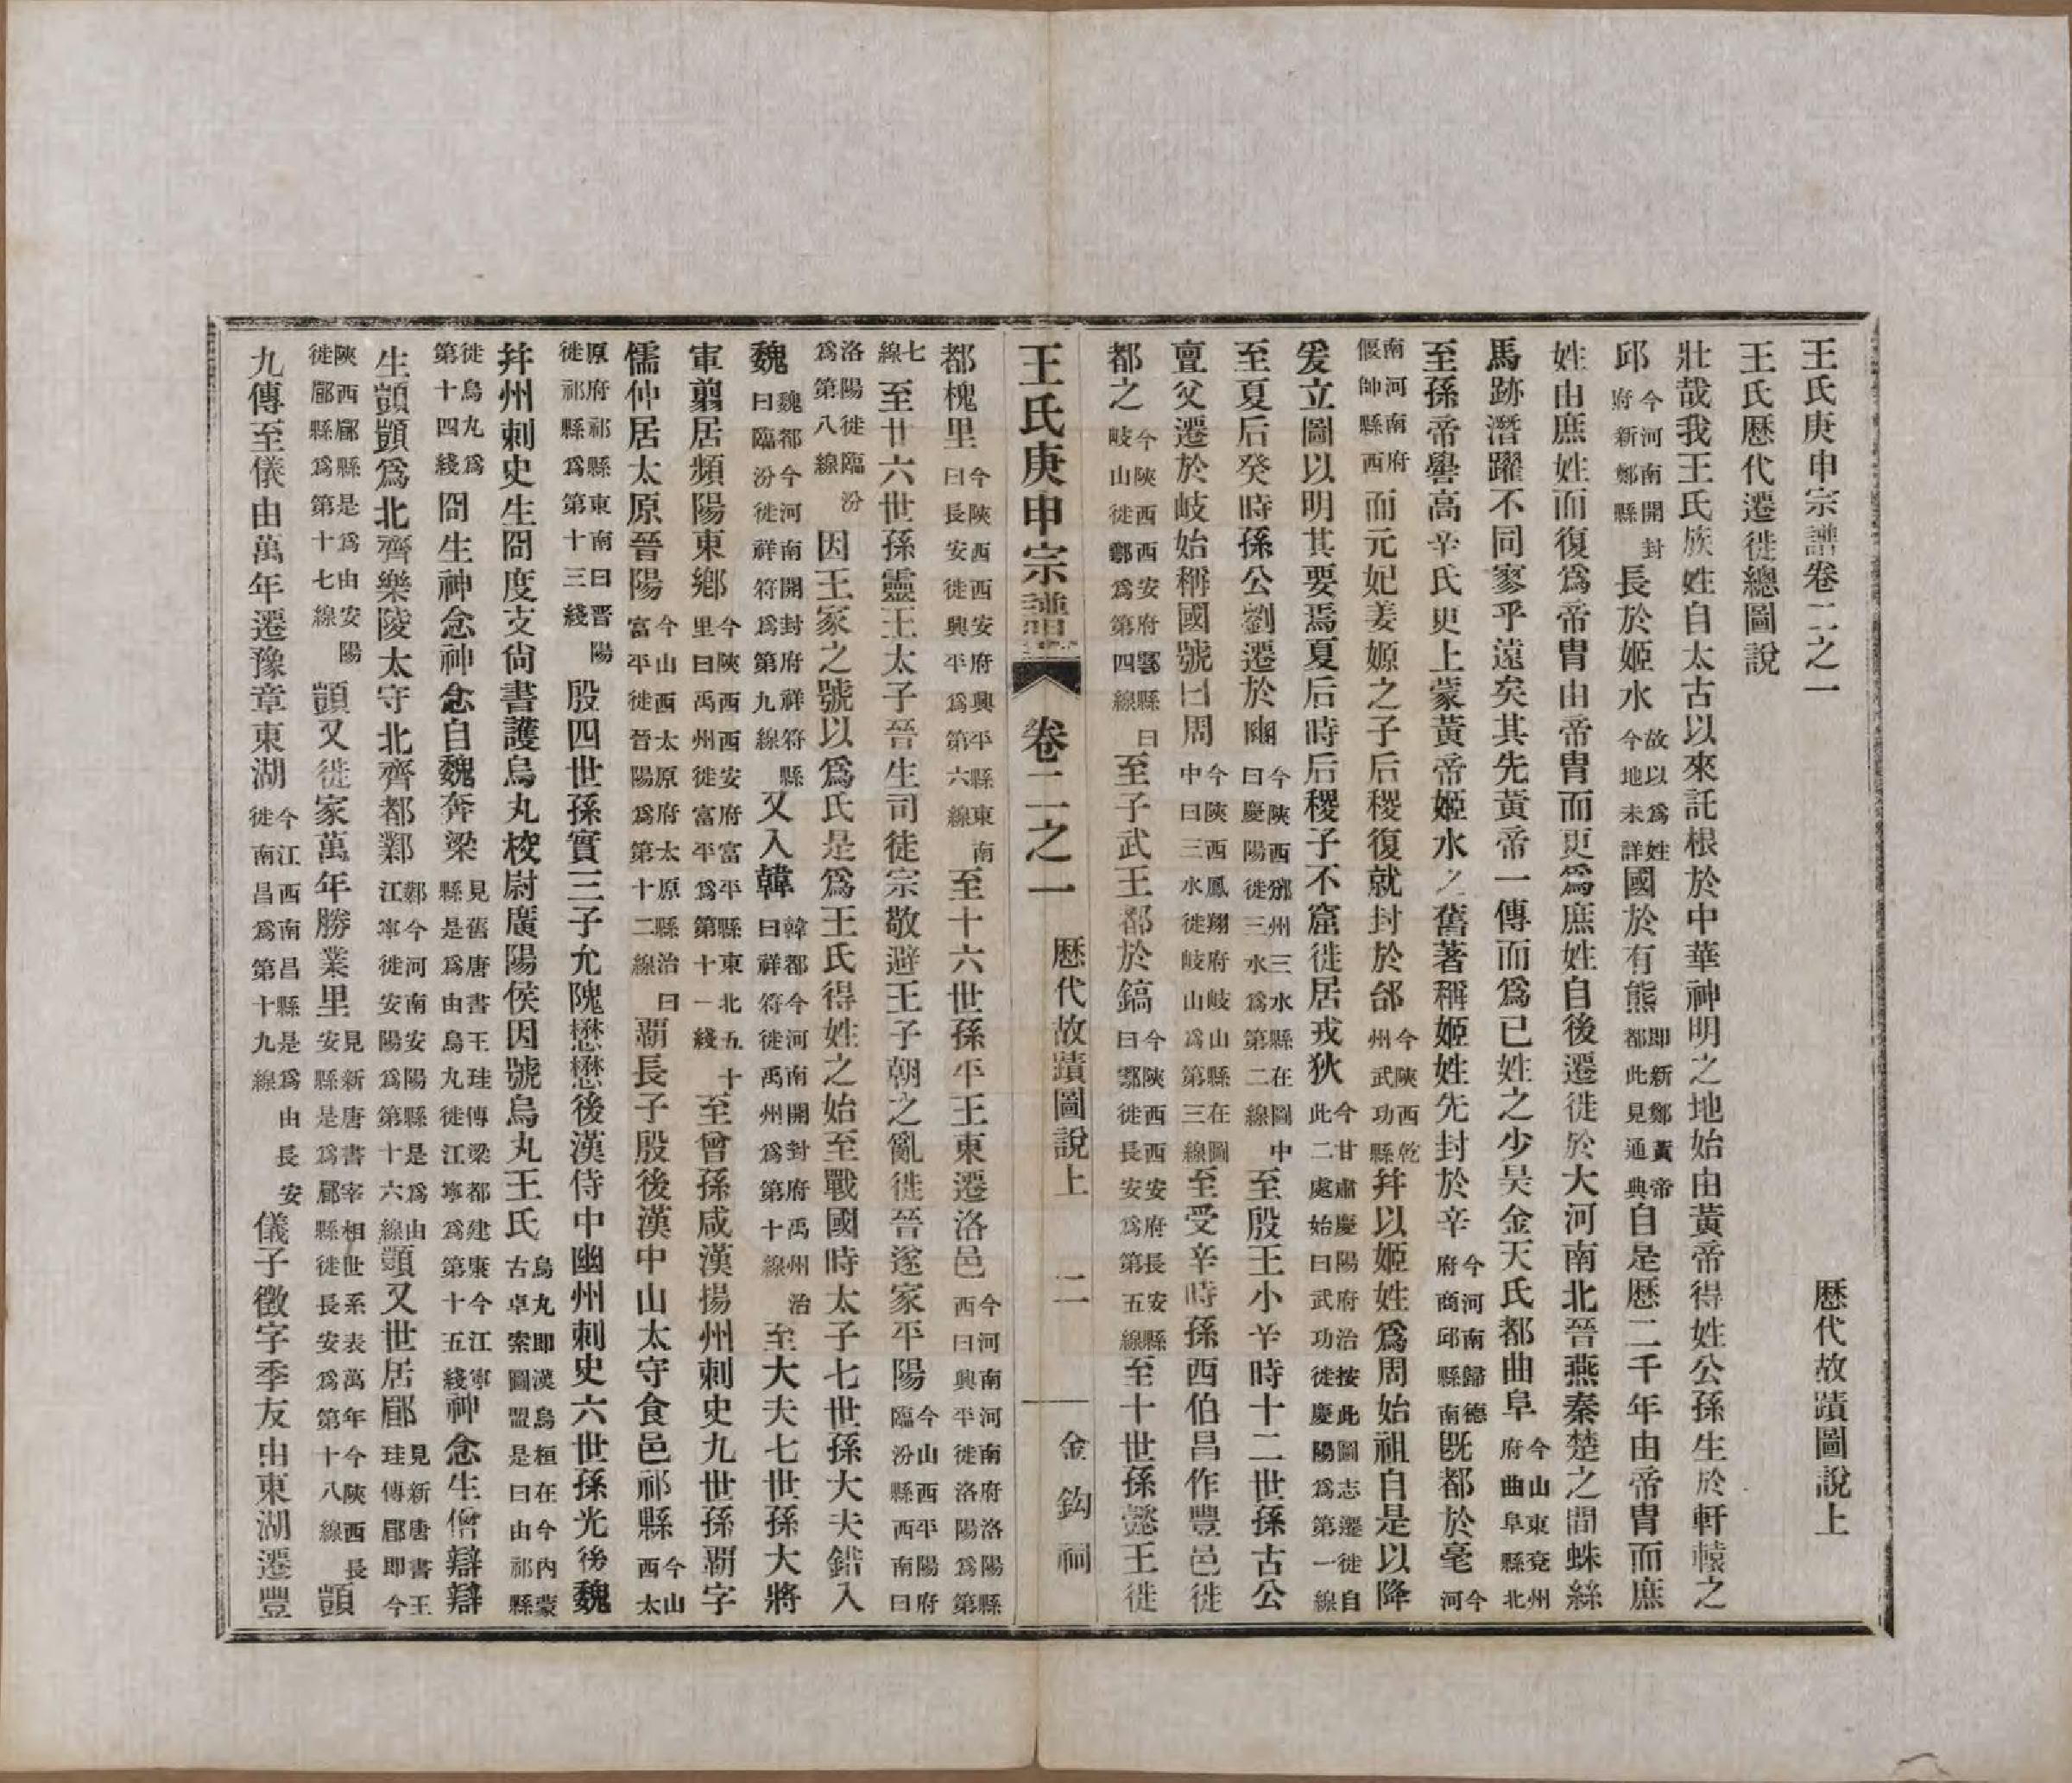 王氏庚申宗譜卷二之一　歷代故蹟圖說上
王氏歷代遷徙總圖說
壯哉我王氏族姓自太古以來託根於中華神明之地始由黃帝得姓公孫生於軒轅之
邱今河南開封府新鄭縣長於姬水故以爲姓今地未詳國於有熊即新鄭黃帝都此見通典自是歷二千年由帝冑而庶
姓由庶姓而復爲帝冑由帝冑而更爲庶姓自後遷徙於大河南北晉燕秦楚之間蛛絲
馬跡潛躍不同寥乎遠矣其先黃帝一傳而爲已姓之少昊金天氏都曲阜今山東兗州府曲阜縣北
至孫帝嚳高辛氏更上蒙黃帝姬水之舊著稱姬姓先封於辛今河南歸德府商邱縣南旣都於亳今河
南河南府偃師縣西而元妃姜嫄之子后稷復就封於邰今陝西乾州武功縣幷以姬姓爲周始祖自是以降
爰立圖以明其要焉夏后時后稷子不窋徙居戎狄今甘肅慶陽府治按此圖志遷徙自此二處始曰武功徙慶陽爲第一線
至夏后癸時孫公劉遷於豳今陝西邠州三水縣在圖中曰慶陽徙三水爲第二線至殷王小辛時十二世孫古公
亶父遷於岐始稱國號曰周今陝西鳳翔府岐山縣在圖中曰三水徙岐山爲第三線至受辛時孫西伯昌作豐邑徙
都之今陝西西安府鄠縣曰岐山徙鄠爲第四線至子武王都於鎬今陝西西安府長安縣曰鄠徙長安爲第五線至十世孫懿王徙
王氏庚申宗譜　卷二之一　歷代故蹟圖說上　二　金鈎祠
都槐里今陝西西安府興平縣東南曰長安徙興平爲第六線至十六世孫平王東遷洛邑今河南河南府洛陽縣西曰興平徙洛陽爲第
七線至廿六世孫靈王太子晉生司徒宗敬避王子朝之亂徙晉遂家平陽今山西平陽府臨汾縣西南曰
洛陽徙臨汾爲第八線因王家之號以爲氏是爲王氏得姓之始至戰國時太子七世孫大夫錯入
魏魏都今河南開封府祥符縣曰臨汾徙祥符爲第九線又入韓韓都今河南開封府禹州治曰祥符徙禹州爲第十線至大夫七世孫大將
軍翦居頻陽東鄉今陝西西安府富平縣東北五十里曰禹州徙富平爲第十一綫至曾孫咸漢揚州刺史九世孫霸字
儒仲居太原晉陽今山西太原府太原縣治曰富平徙晉陽爲第十二線霸長子殷後漢中山太守食邑祁縣今山西太
原府祁縣東南曰晋陽徙祁縣爲第十三綫殷四世孫實三子允隗懋懋後漢侍中幽州刺史六世孫光後魏
幷州刺史生冏度支尙書護烏丸校尉廣陽侯因號烏丸王氏烏丸即漢烏桓在今內蒙古卓索圖盟是曰由祁縣
徙烏丸爲第十四綫冏生神念神念自魏奔梁見舊唐書王珪傳梁都建康今江寧縣是爲由烏丸徙江寧爲第十五綫神念生僧辯辯
生顗顗爲北齊樂陵太守北齊都鄴鄴今河南安陽縣是爲由江寧徙安陽爲第十六線顗又世居郿見新唐書王珪傳郿即今
陝西郿縣是爲由安陽徙郿縣爲第十七線顗又徙家萬年勝業里見新唐書宰相世系表萬年今陝西長安縣是爲郿縣徙長安爲第十八線顗
九傳至儀由萬年遷豫章東湖今江西南昌縣是爲由長安徙南昌爲第十九線儀子徵字季友由東湖遷豐